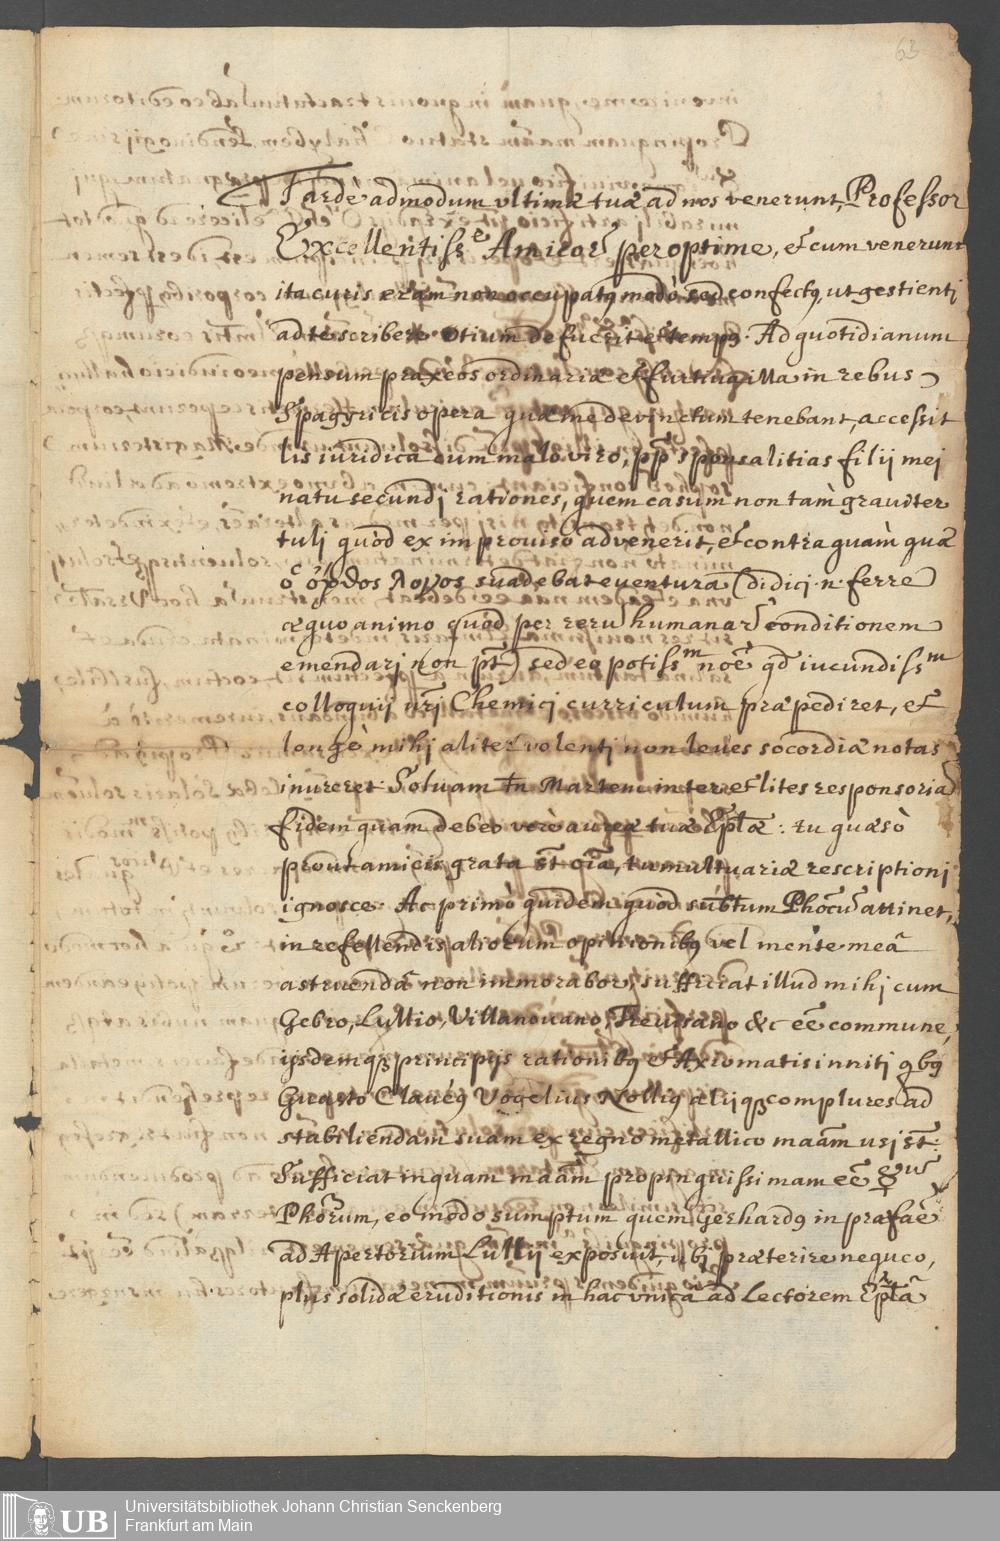 63
Tardè admodum ultimæ tuæ ad nos venerunt, Professor
Excellentiss.e Amicor̃ peroptime, et cum venerunt
ita curis eram non occupatꝰ modò, sed confectꝰ, ut gestienti
ad te scribere otium defuerit et tempꝰ. Ad quotidianum
pensum praxeos ordinariæ et furtiva illa in rebus
Spagyricis opera quæ me devinctum tenebant, accessit
lis iuridica cum malo viro, pp̃ sponsalitias filij mej
natu secundj rationes, quem casum non tam graviter
tulj quòd ex improviso advenerit, et contra quàm quæ
ὁ ὀρθος λογος suadebat eventura (didici .n. ferre
æquo animo quòd per rerũ humanar̃ conditionem
emendarj non pt̃) sed eo potiss.m noẽ qd̃ iucundiss.m
colloquij nr̃j Chemicj curriculum præpediret, et
longè mihj aliter volentj non leves socordiæ notas
inureret. Soluam tñ Martem inter et lites responsoriã
fidem quam debeo verè aureæ tuæ Ep̃læ: tu quæsò
prout amicis grata st̃ oĩa, tumultuariæ rescriptionj
ignosce. Ac primò quidem quòd subtum Phõcũ attinet,
in refellendis aliorum opinionibꝰ vel mente meâ
astruendâ non immorabor, sufficiat illud mihj cum
Gebro, Lullio, Villanovano, Trevisano &c eẽ commune,
ijsdemqꝫ principijs rationibꝰ et Axiomatis inniti qbꝰ
Gvasto Clavéꝰ Vogelius Nolliꝰ alijqꝫ complures ad
stabiliendam suam ex regno metallico maãm usj st̃.
Sufficiat inquam maãm propinquissimam eẽ ☿um
Phõrum, eo modo sumptum quem Gerhardꝰ in præfaẽ
ad Apertorium Lullij exposuit, ubj præterire nequeo,
plus solidæ eruditionis in hac unica ad Lectorem Ep̃lã
UB
Universitätsbibliothek Johann Christian Senckenberg
Frankfurt am Main